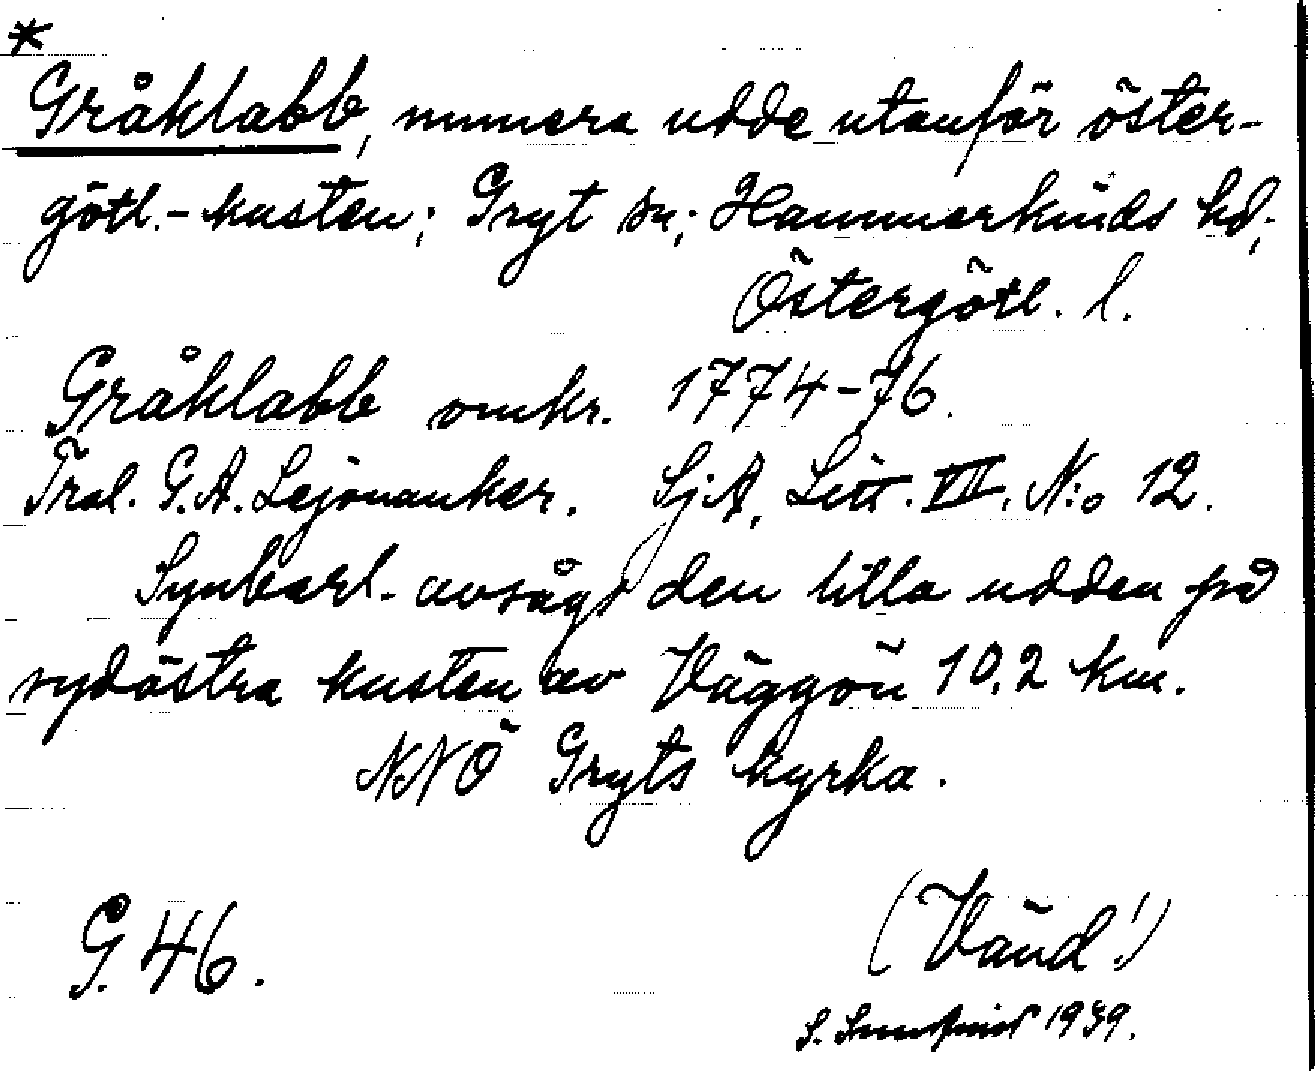 *
Gråklabb, numera udde utanför öster-
götl.-kusten; Gryt sn; Hammarkinds hd;
Östergötl. l.
Gråklabb omkr. 1774-76.
Tral. G.A. Lejonanker. SjA, Litt. VII. N:o 12.
Synbarl. avsågs den lilla udden på
sydöstra kusten av Väggön 10,2 km.
NNÖ Gryts kyrka.
G. 46.
(Vänd!)
S. 1939.